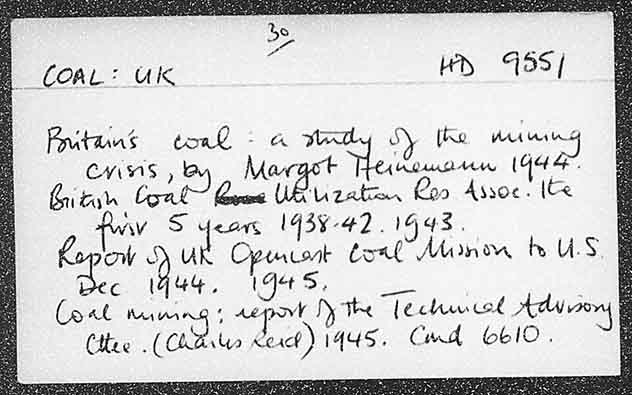 30
COAL: UK HD 9551
Britain's coal: a study of the mining
crisis, by Margot Heinemann 1944.
British Coal Utilization Res Assoc. The
first 5 years 1938-42. 1943.
Report of UK Opencast Coal Mission to U.S.
Dec 1944. 1945.
Coal mining: report of the Technical Advisory
Cttee. (Charles Reid) 1945. Cmd 6610.